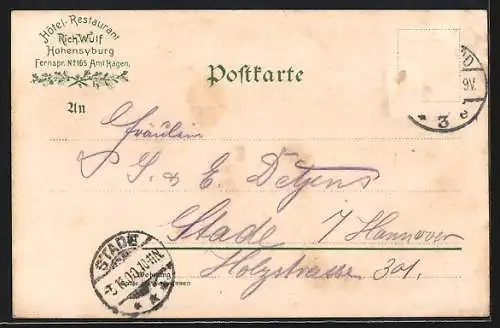 Hôtel-Restaurant
Rich. Wulf
Hohensyburg
Fernspr. No 105 Amt Hagen.
Postkarte
An
Fräulein
S. & E. Detjens
Stade i/ Hannover
Holzstrasse 301.
STADE
9V.
* 3 e
Wohnung